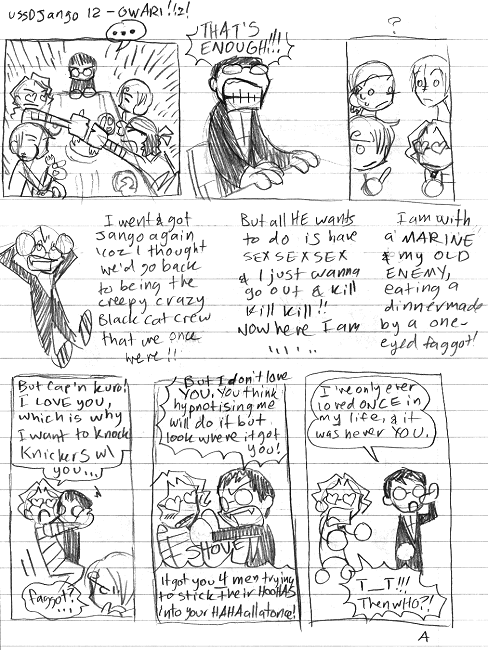 USSDJango 12 - OWARI!!!2!
...
THAT'S
ENOUGH!!!
?
I went & got
Jango again
'coz I thought
we'd go back
to being the
creepy crazy
Black Cat crew
that we once
were!!
But all HE wants
to do is have
SEX SEX SEX
& I just wanna
go out & kill
kill kill!!
NOW here I am
......
I am with
a MARINE
& my OLD
ENEMY,
eating a
dinner made
by a one-
eyed faggot!
But Cap'n Kuro!
I LOVE YOU,
which is why
I want to knock
knickers w/
you...
faggot?
...
But I don't love
YOU. YOU think
hypnotising me
will do it but
look where it got
you!
SHOVE
It got you 4 men trying
to stick their HOOHAS
into your HAHA all at once!
I've only ever
loved ONCE in
my life, & it
was never YOU.
T_T!!!
Then WHO?!
A